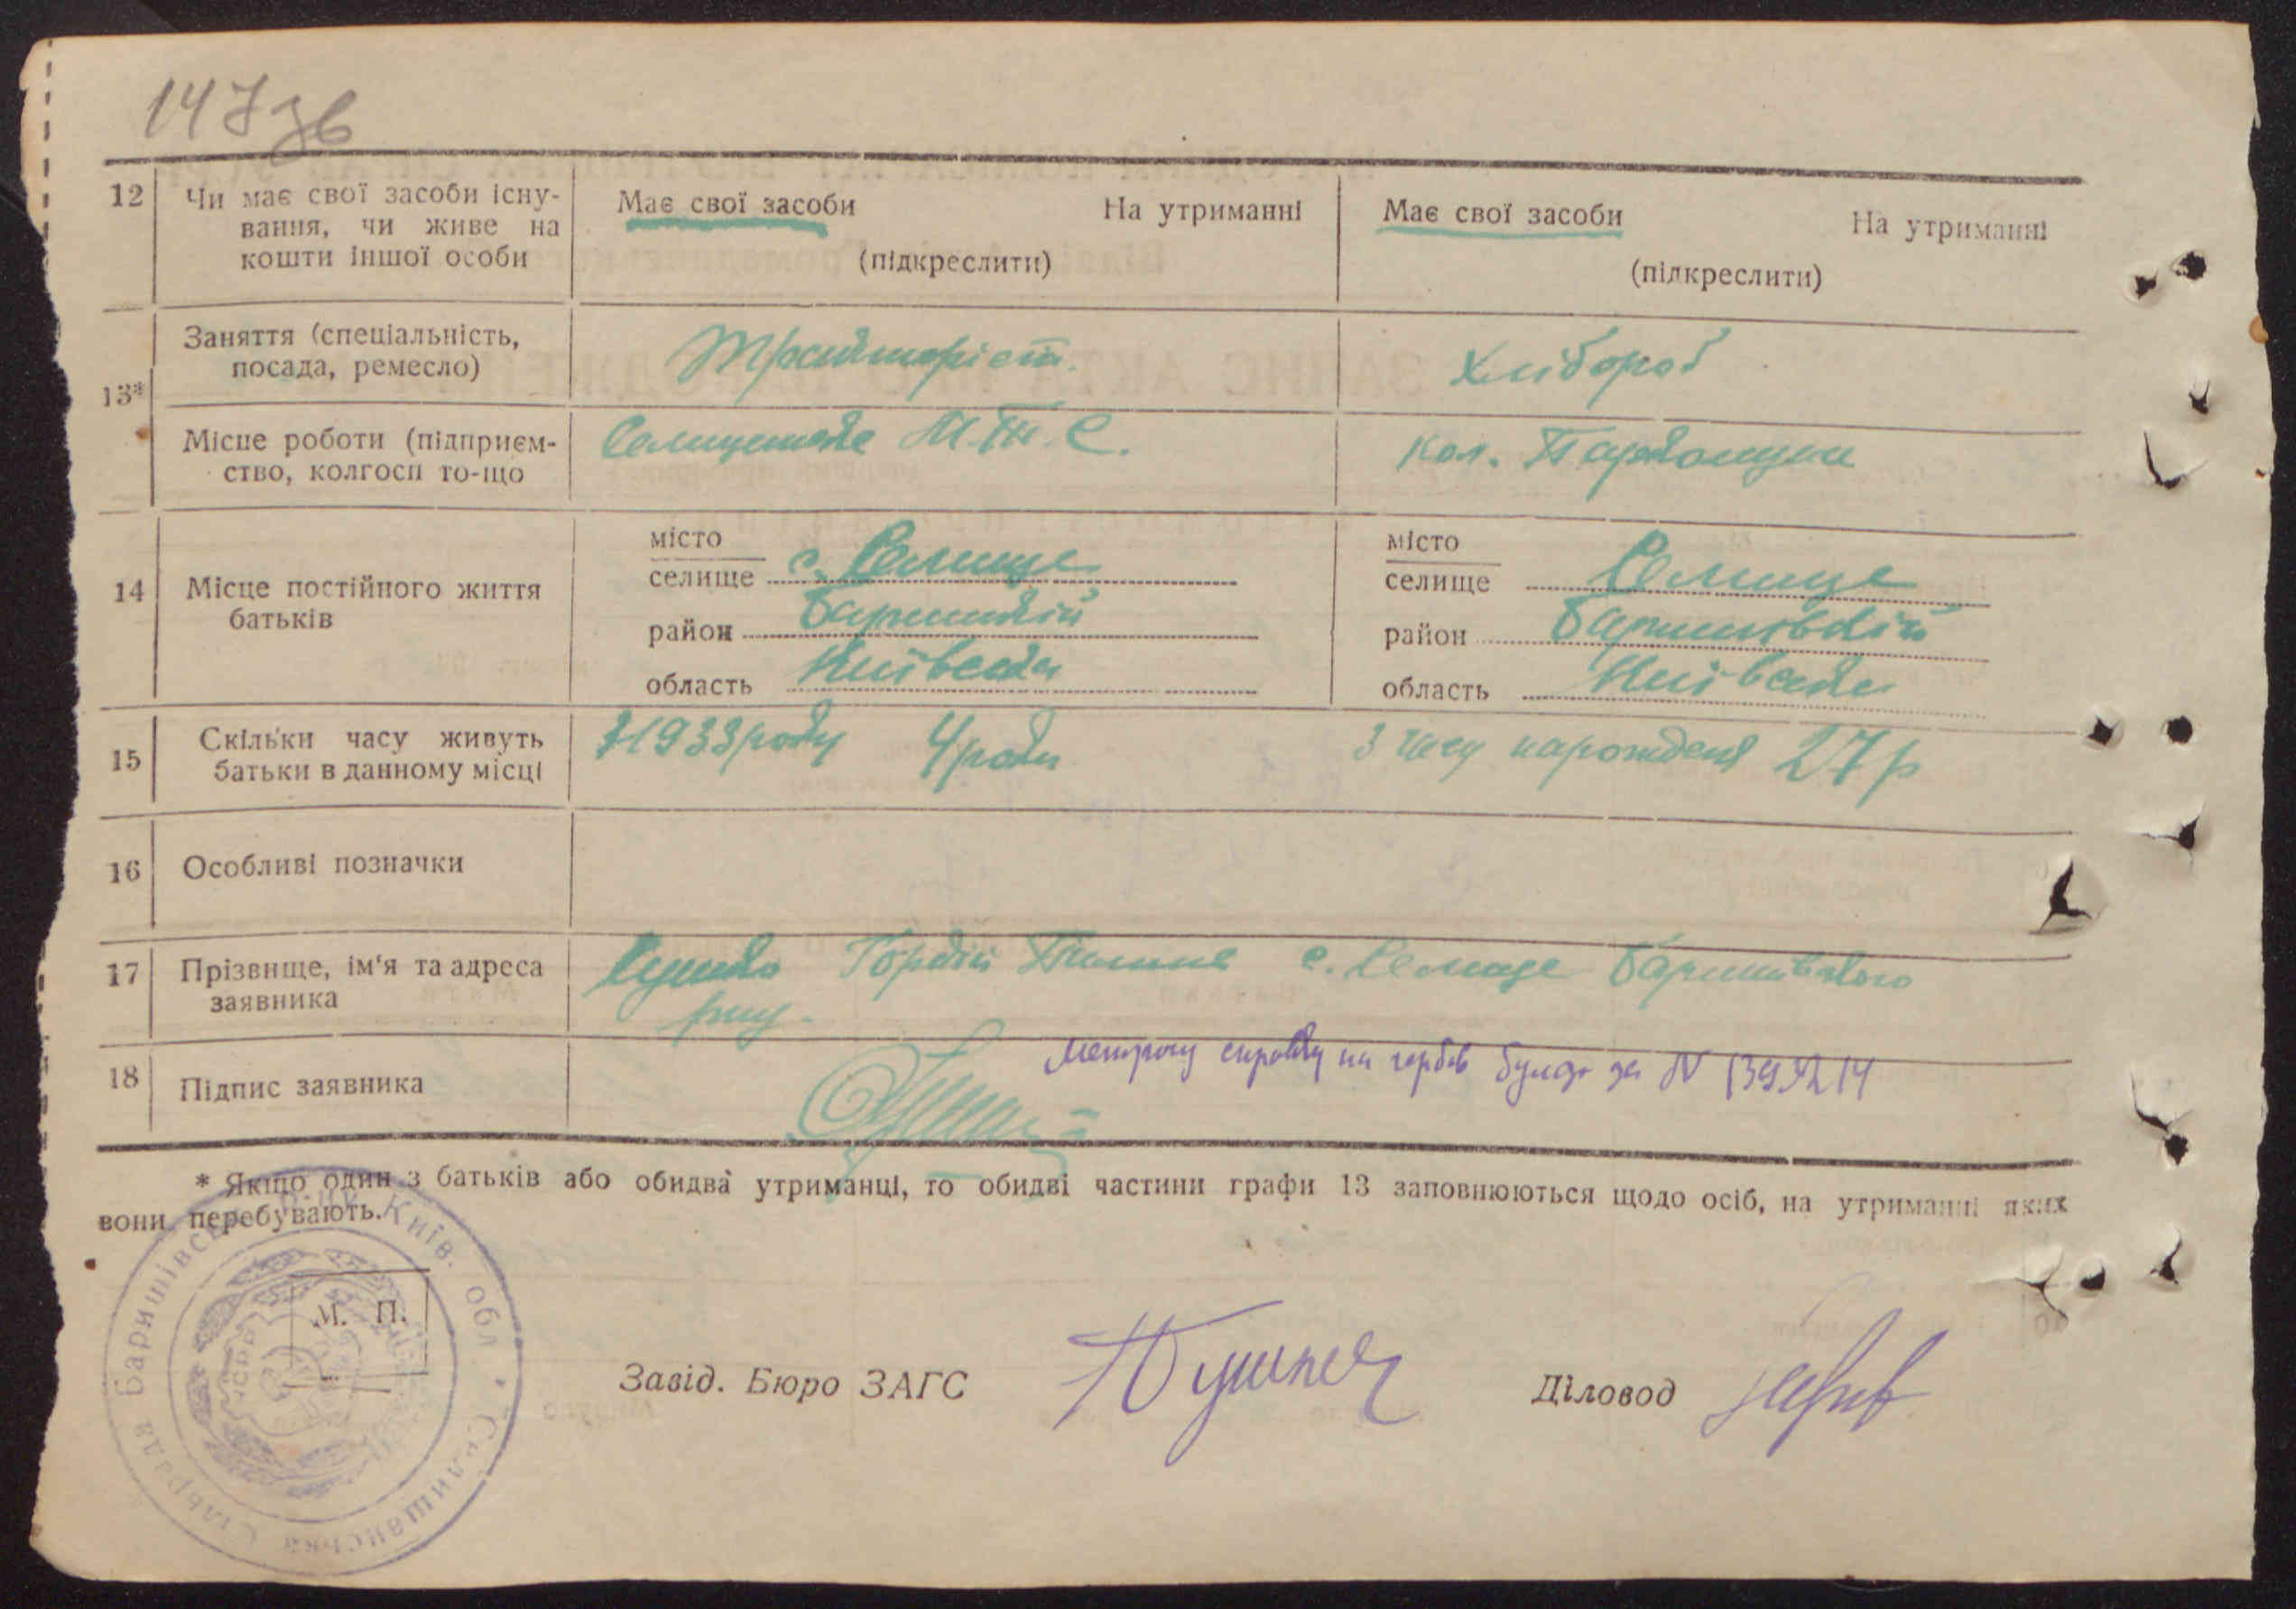 147 зв
12 Чи має свої засоби існу-
вання, чи живе на
кошти іншої особи
Має свої засоби На утриманні
(підкреслити)
Має свої засоби На утриманні
(підкреслити)
13*
Заняття (спеціальність,
посада, ремесло)
Тракторіст.
Хлібороб
Місце роботи (підприєм-
ство, колгосп то-що
М.Т.С.
кол.
14 Місце постійного життя
батьків
місто
селище с. Селище
район
область Київська
місто
селище Селище
район Баришівській
область Київська
15 Скільки часу живуть
батьки в данному місці
З 1933 року 4 роки
З часу народженя 27 р
16 Особливі позначки
17 Прізвище, ім'я та адреса
заявника
Гордій с. Селище Баришівського
рну.
18 Підпис заявника
на за N
* Якщо один з батьків або обидва утриманці, то обидві частини графи 13 заповнюються щодо осіб, на утриманні яких
вони перебувають.
Баришівськ. р-ну Київ. обл. * Селищанська Сільрада
УСРР
М. П.
Завід. Бюро ЗАГС
Діловод